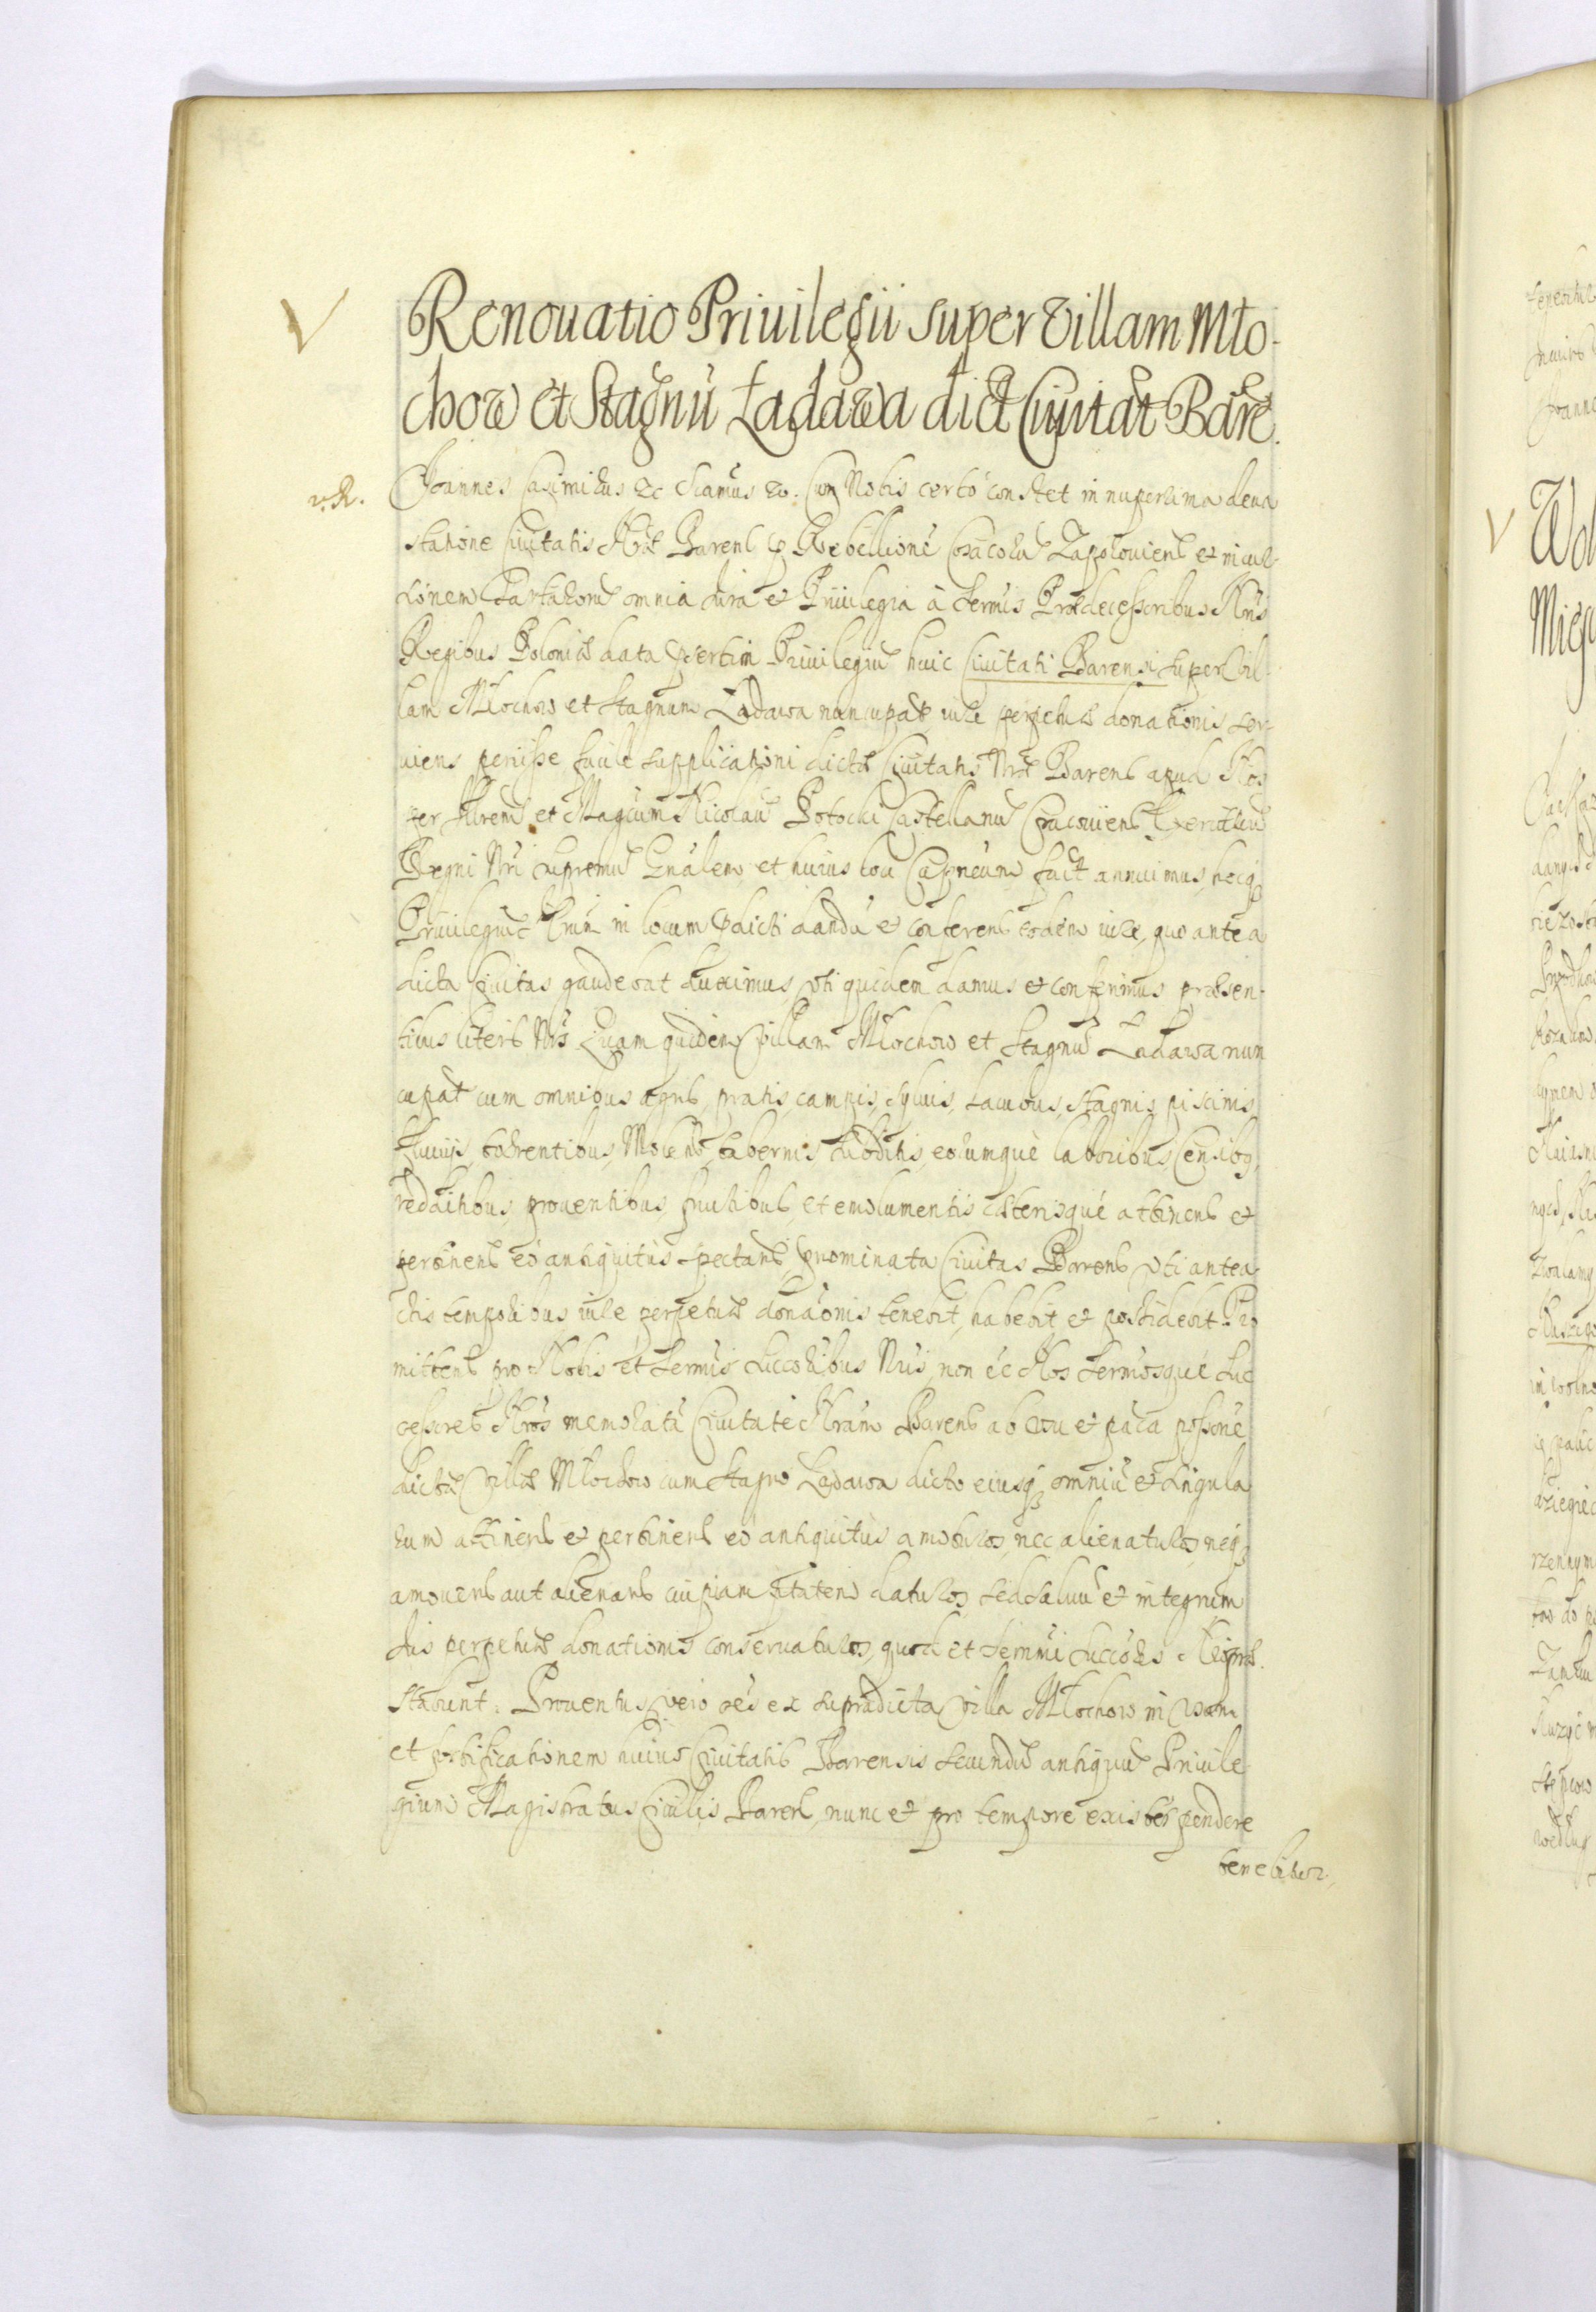 Renouatio Priuilegii super Villam Mło-
chow et Stagnū Ładawa dict Ciuitat Barē.
v. R.
Joannes Casimirus &c Sciamus &c. Cum Nobis certo constet in nuperima deua
statione Ciuitatis Nrae Barens p Rebellionē Cosacorū Zaporouiens et incur-
sionem Tartarorū omnia Jura et Priuilegia à Sermis Praedecessoribus Nris
Regibus Poloniae data psertim Priuilegiū huic Ciuitati Barensi super Vil-
lam Młochow et Stagnum Ładawa nuncupat iure perpetuae donationis ser-
uiens perijsse, facile supplicationi dictae Ciuitatis Nrae Barens apud Nos
per Illrem et Magcum Nicolaū Potocki Castellanū Cracouiens Exercituū
Regni Nri supremū Gnalem et huius loci Capneum fact annuimus, hocq
Priuilegiū in locum pdicti dandū et conferens eodem iure, quo antea
dicta Ciuitas gaudebat duximus, vti quidem damus et conferimus praesen-
tibus literis Nris Quam quidem Villam Młochow et Stagnū Ładawa nun
cupat cum omnibus agris, pratis, campis, syluis, lacubus, stagnis, piscinis,
fluuijs, torrentibus, Molens, tabernis subditis, eorumque laboribus Censibq,
reddithbus, prouentibus, fructibus, et emolumentis caeterisque attinens et
pertinens eo antiquitus spectans, pnominata Ciuitas Barens vti antea
dis temporibus iure perpetuae donaonis tenebit, habebit et possidebit. Pro
mittens pro Nobis et Sermis Succoribus Nris, non ee Nos Sermosque Suc
cessores Nros memoratā Ciuitatē Nram Barens ab vsu et paca possone
dictae Villae Młochow cum Stagno Ładawa dicto eiusq omniū et singula
rum attinens et pertinens eo antiquitus amoturos, nec alienaturos, neq
amouens aut alienans cuipiam ptatem daturos, sed saluū et integrum
Jus perpetuae donationis conseruaturos, quod et Sermi Succores Nri
stabunt. Prouentus vero oes ex supradicta Villa Młochow in
et fortificationem huius Ciuitatis Barensis secundū antiquū Priuile
gium Magistratus Ciuilis Barens, nunc et pro tempore existēs pendere
tenebitur,